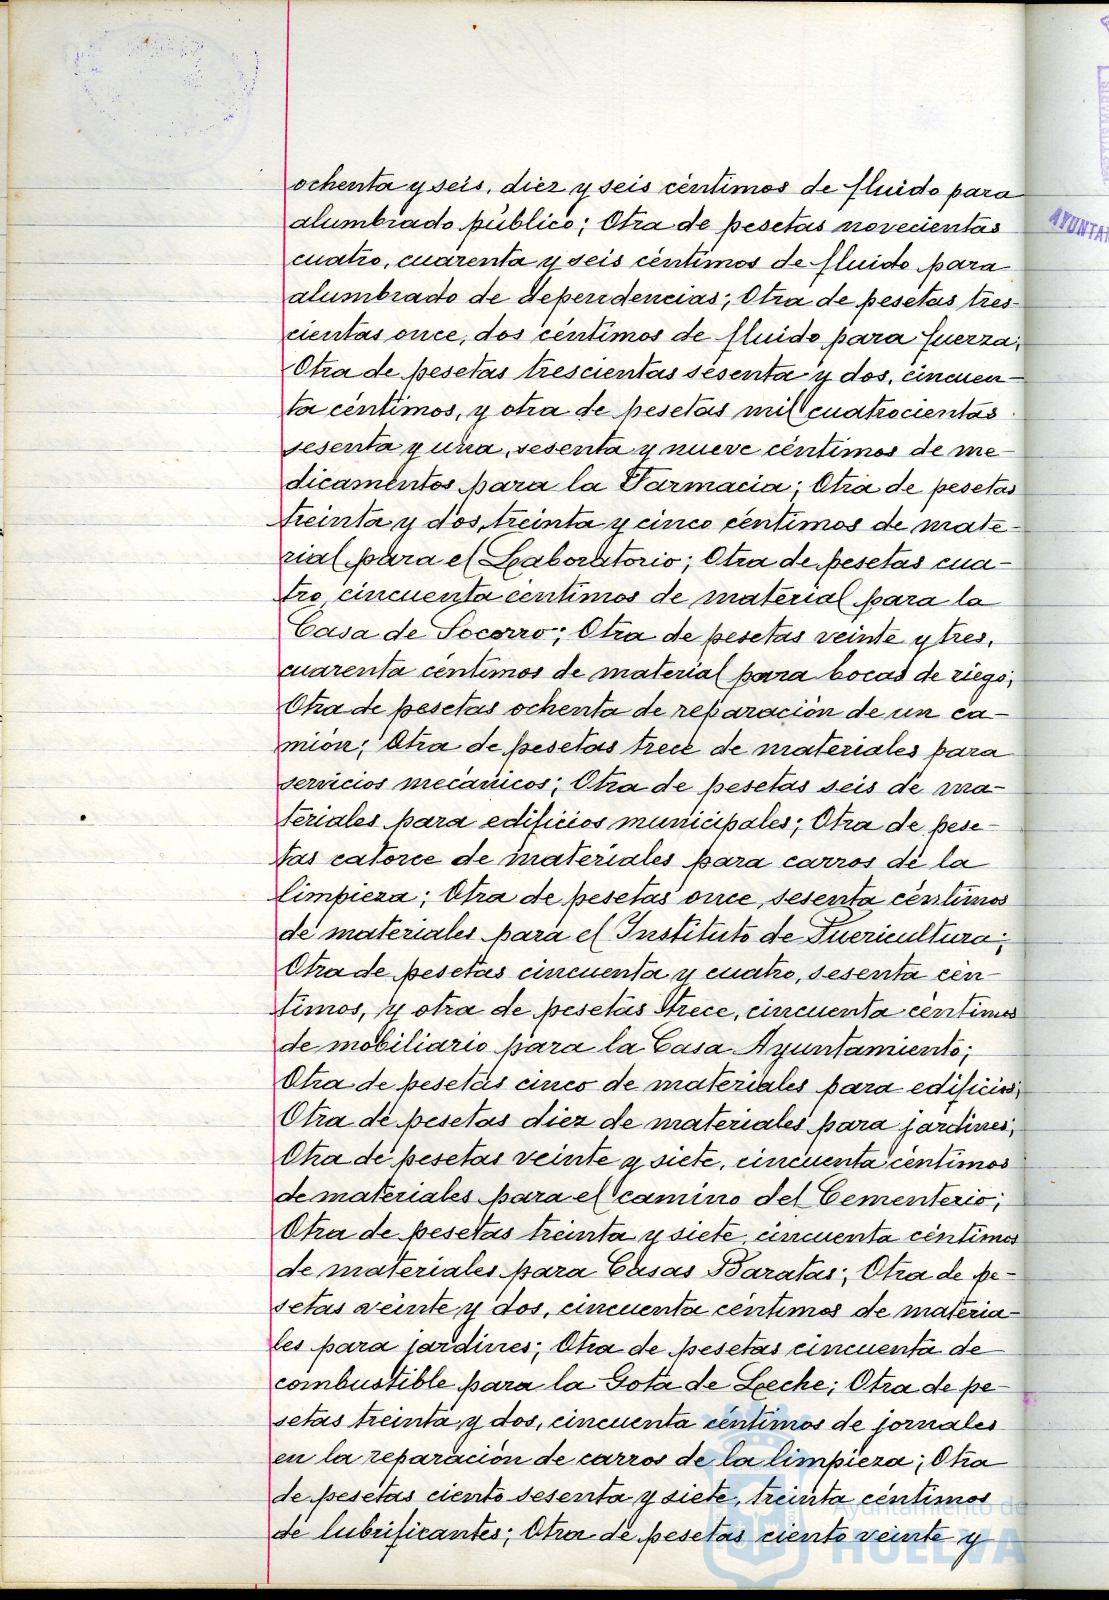 ochenta y seis, diez y seis céntimos de fluido para
alumbrado público; Otra de pesetas novecientas
cuatro, cuarenta y seis céntimos de fluido para
alumbrado de dependencias; Otra de pesetas tres-
cientas once, dos céntimos de fluido para fuerza;
Otra de pesetas trescientas sesenta y dos, cincuen-
ta céntimos, y otra de pesetas mil cuatrocientas
sesenta y una, sesenta y nueve céntimos de me-
dicamentos para la Farmacia; Otra de pesetas
treinta y dos, treinta y cinco céntimos de mate-
rial para el Laboratorio; Otra de pesetas cua-
tro, cincuenta céntimos de material para la
Casa de Socorro; Otra de pesetas veinte y tres,
cuarenta céntimos de material para bocas de riego;
Otra de pesetas ochenta de reparación de un ca-
mión; Otra de pesetas trece de materiales para
servicios mecánicos; Otra de pesetas seis de ma-
teriales para edificios municipales; Otra de pese-
tas catorce de materiales para carros de la
limpieza; Otra de pesetas once, sesenta céntimos
de materiales para el Instituto de Puericultura;
Otra de pesetas cincuenta y cuatro, sesenta cén-
timos, y otra de pesetas trece, cincuenta céntimos
de mobiliario para la Casa Ayuntamiento;
Otra de pesetas cinco de materiales para edificios;
Otra de pesetas diez de materiales para jardines;
Otra de pesetas veinte y siete, cincuenta céntimos
de materiales para el camino del Cementerio;
Otra de pesetas treinta y siete, cincuenta céntimos
de materiales para Casas Baratas; Otra de pe-
setas veinte y dos, cincuenta céntimos de materia-
les para jardines; Otra de pesetas cincuenta de
combustible para la Gota de Leche; Otra de pe-
setas treinta y dos, cincuenta céntimos de jornales
en la reparación de carros de la limpieza; Otra
de pesetas ciento sesenta y siete, treinta céntimos
de lubrificantes; Otra de pesetas ciento veinte y
Ayuntamiento de
HUELVA